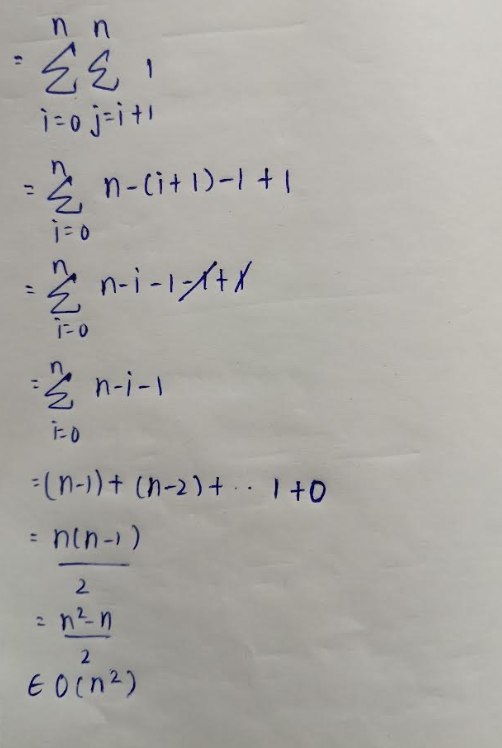 = n∑i=0 n∑j=i+1 1
= n∑i=0 n-(i+1)-1+1
= n∑i=0 n-i-1-1+1
= n∑i=0 n-i-1
=(n-1)+(n-2)+..1+0
= n(n-1)/2
= n²-n/2
∈ O(n²)